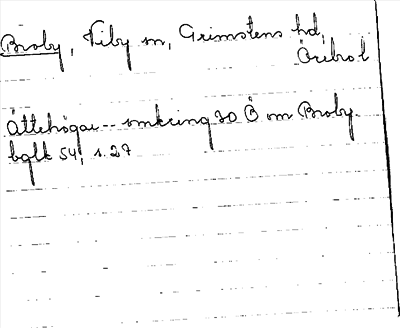 Broby, Viby sn, Grimstens hd,
Örebro l
Ättehögar -- omkring 20 Ö om Broby.
bglk 54, s. 27